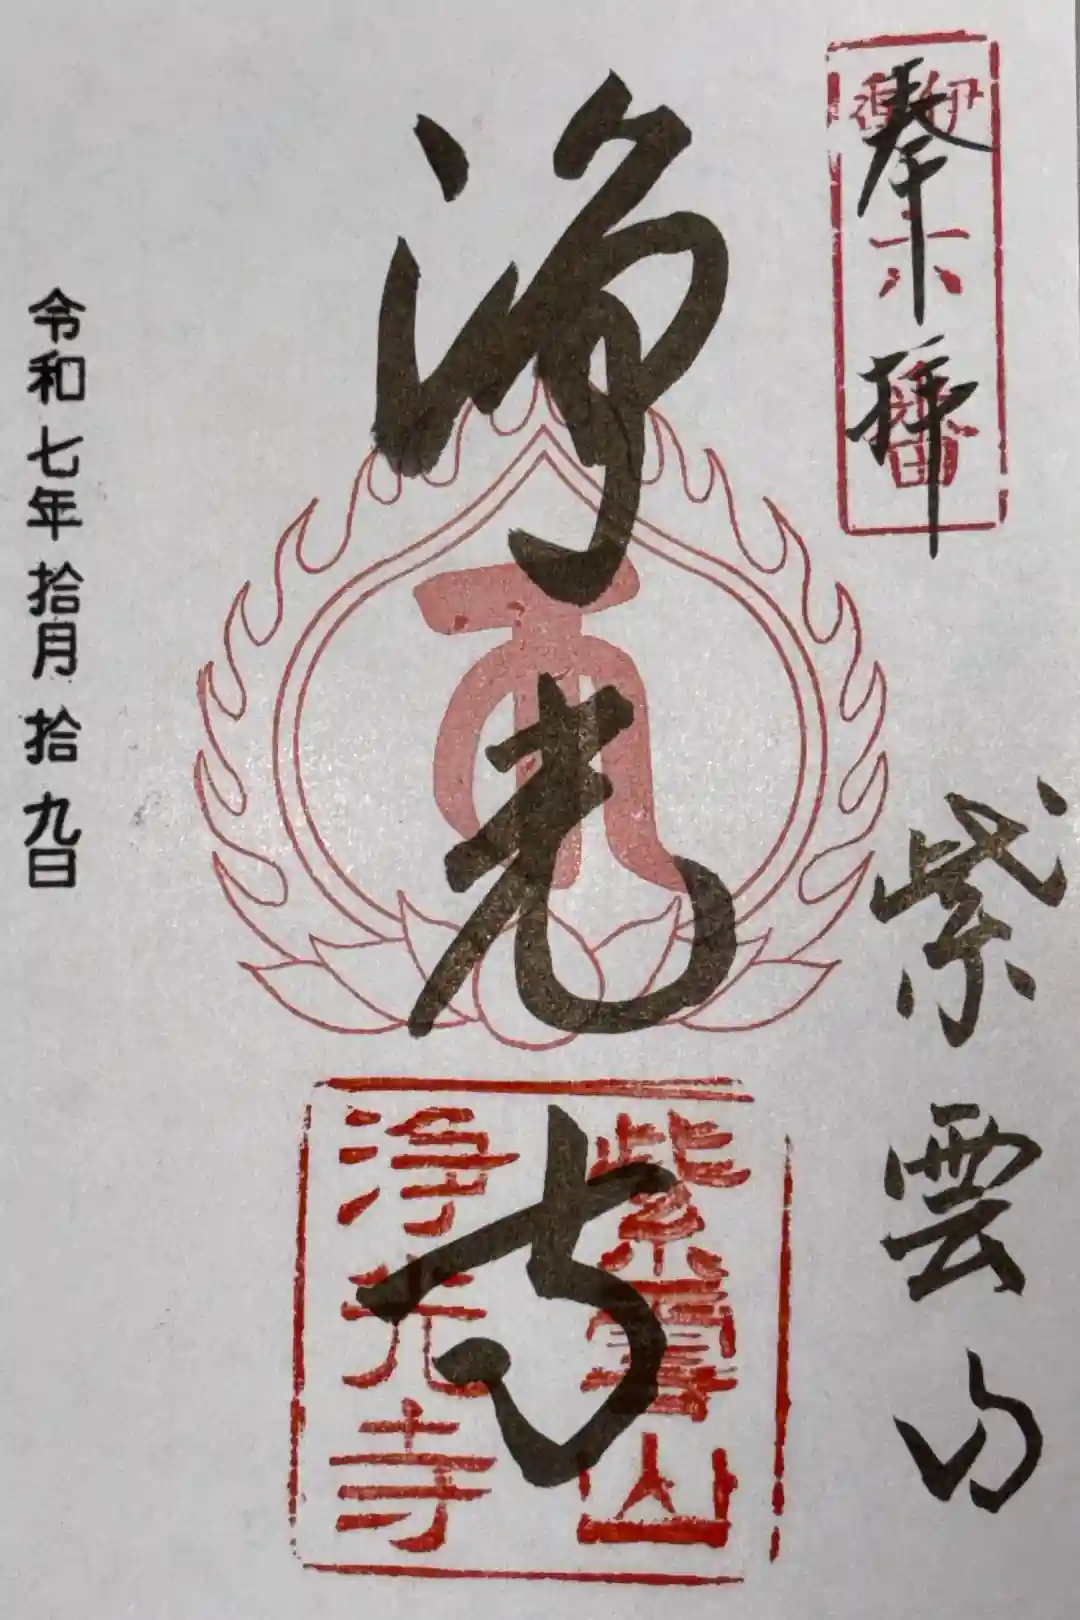 奉拝
紫雲山
浄光寺
紫雲山
浄光寺
令和七年拾月拾九日